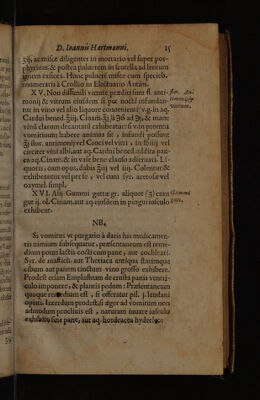 D. Ioannis Hartmanni. 25
ʒij. ac misce diligenter in mortario vel super por-
phyrium & postea pulverem in scutella ad lentum
ignem exsicca. Hunc pulverē misce cum specieb.
enumeratis à Crollio in Electuario Antim.
XV. Non dissimili virtute præditi sunt fl. anti-
monij & vitrum ejusdem si per noctē infundan-
tur in vino vel alio liquore convenienti v.g. in aq.
Cardui bened.
vinū clarum decantatū exhibeatur: si
vomitum habere animus sit, infundi possunt
flor. antimonij vel Croci vel vitri, in
circiter vini albi, aut aq. Cardui bened. addita pau-
ca aq. Cinam. & in vase bene clauso adservari. Li-
quoris, cum opus, dabis
exhibeantur vel per se, vel cum syr. acetosæ vel
oxymel. simpl.
XVI. Alij Gummi guttæ gr. aliquot cum
gut ij. ol. Cinam. aut aq. ejusdem in pingui jusculo
exhibent.
NB.
Si vomitus vel purgatio à datis his medicamen-
tis nimium subsequatur, præsentaneum est reme-
dium potus lactis cocti cum pane, aut cochleari
Syr. de mastich. aut Theriaca antiqua statimque
cibum aut panem tinctum vino grosso exhibere.
Prodest etiam Emplastrum de crusta panis ventri-
culo imponere, & plantis pedum: Præsentaneum
quoque remedium est, si offeratur pil. j. laudani
opiati. Interdum prodest, si æger ad vomitum non
admodum proclivis est, naturam juvare jusculo
exhibito sine pane, aut aq. hordeacea hydelæo: